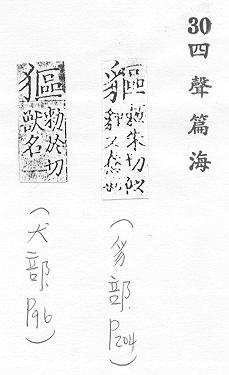 30四聲篇海
貙
朱切似
（豸部.P204）
勑於切
獸名
（犬部.P96）